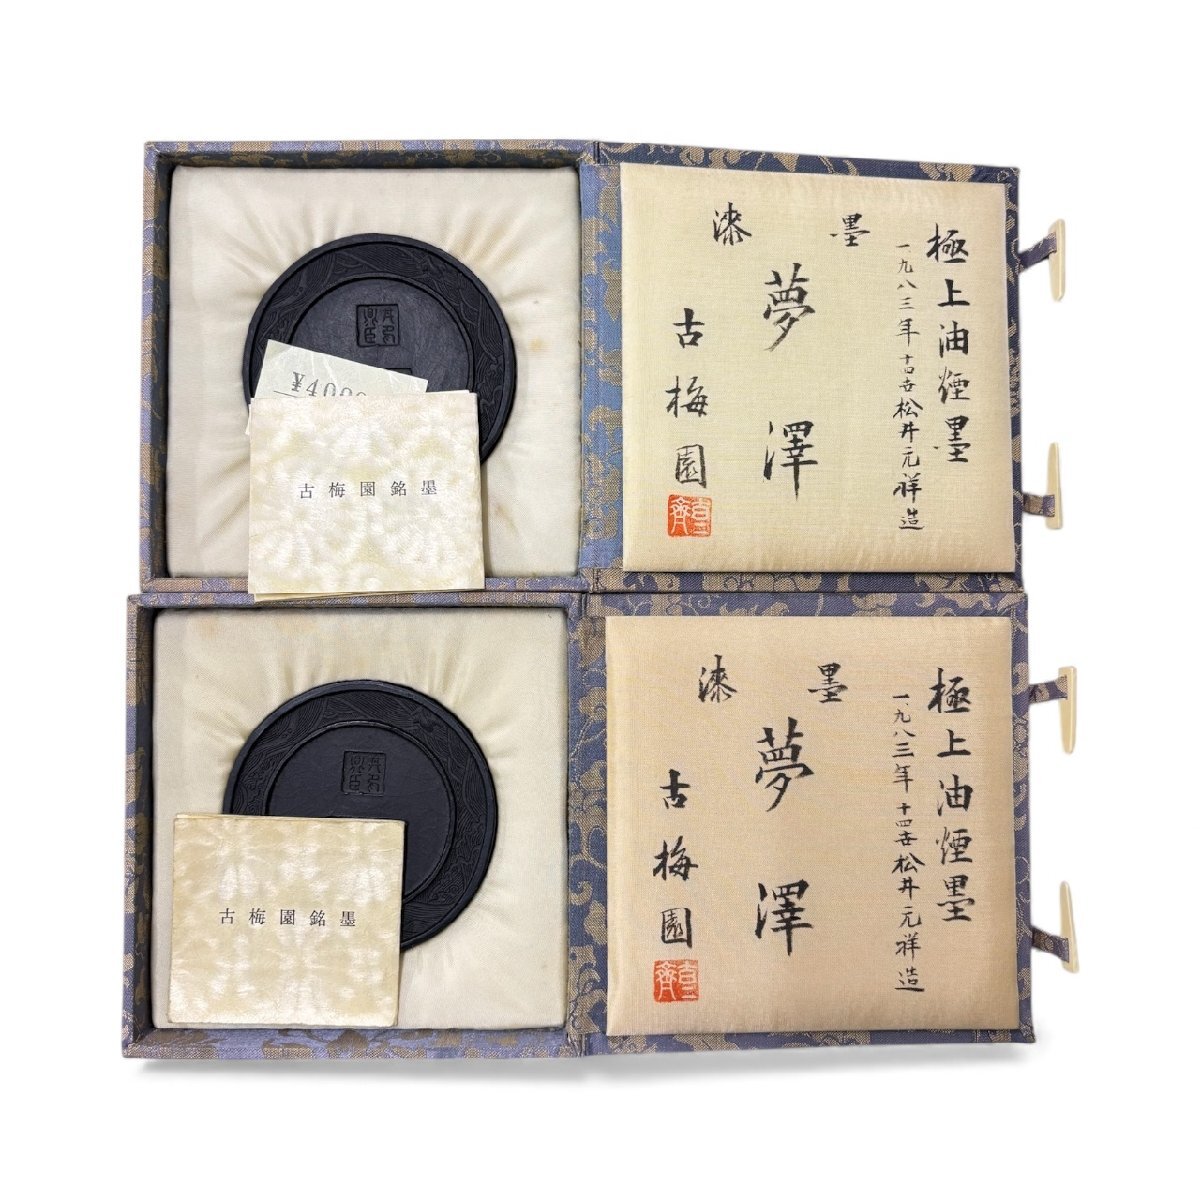 極上油煙墨
一九八三年 十四世松井元祥造
漆墨
夢澤
古梅園
¥4000
古梅園銘墨
極上油煙墨
一九八三年 十四世松井元祥造
漆墨
夢澤
古梅園
古梅園銘墨